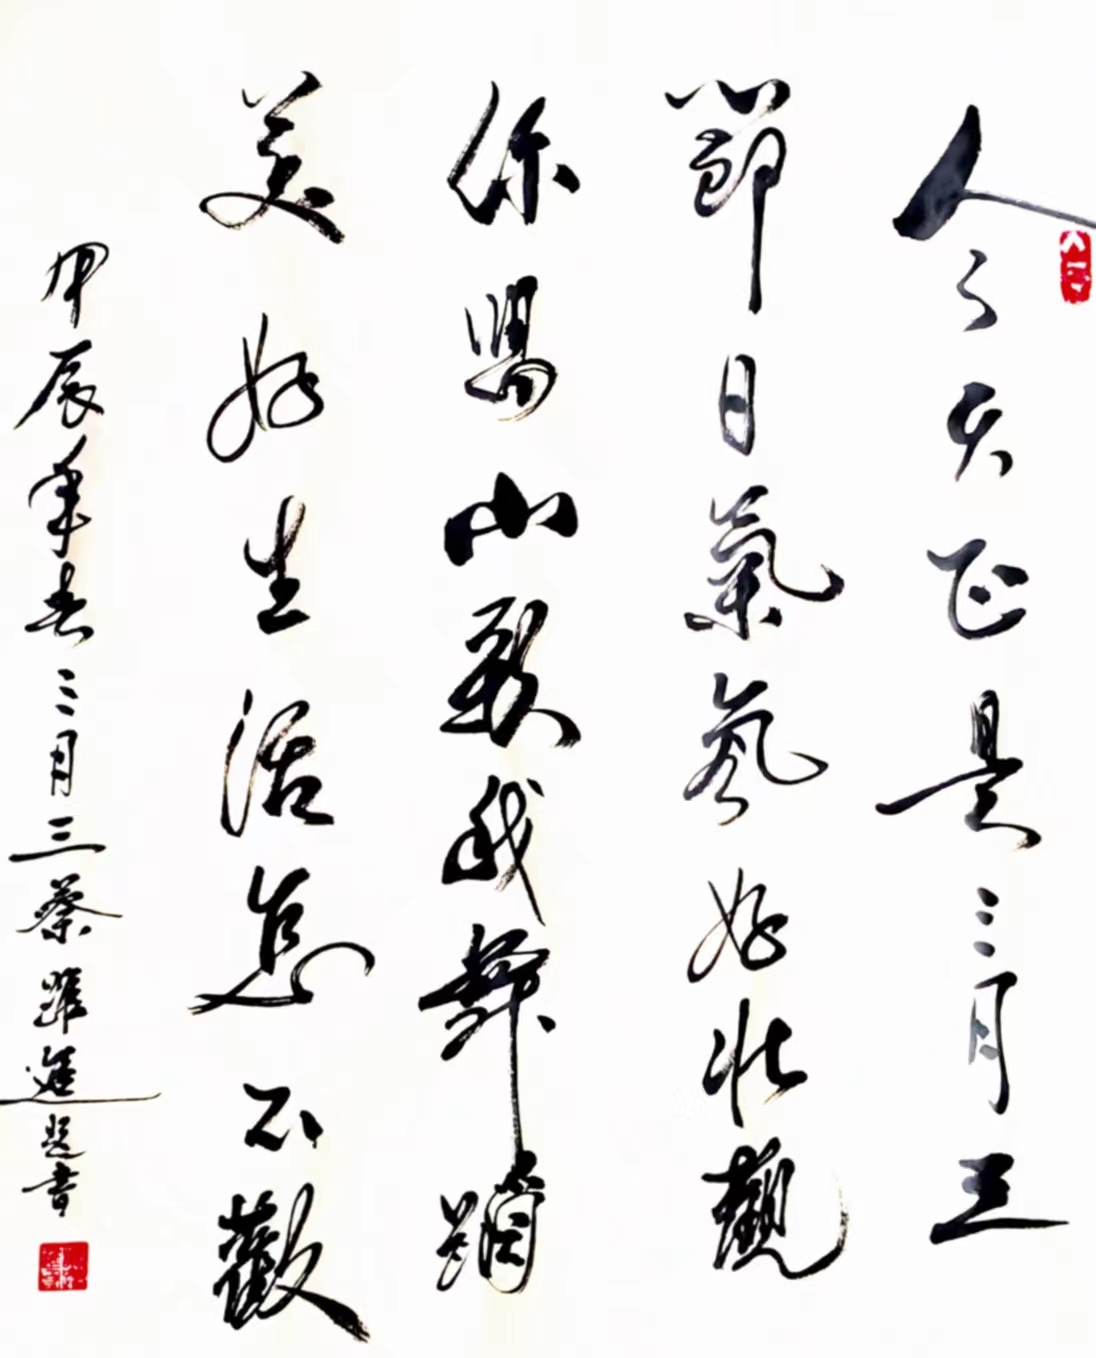 今天正是三月三
節日氣氛好壮觀
你唱山歌我舞蹈
美好生活怎不歡
甲辰年春三月三蔡躍進題書